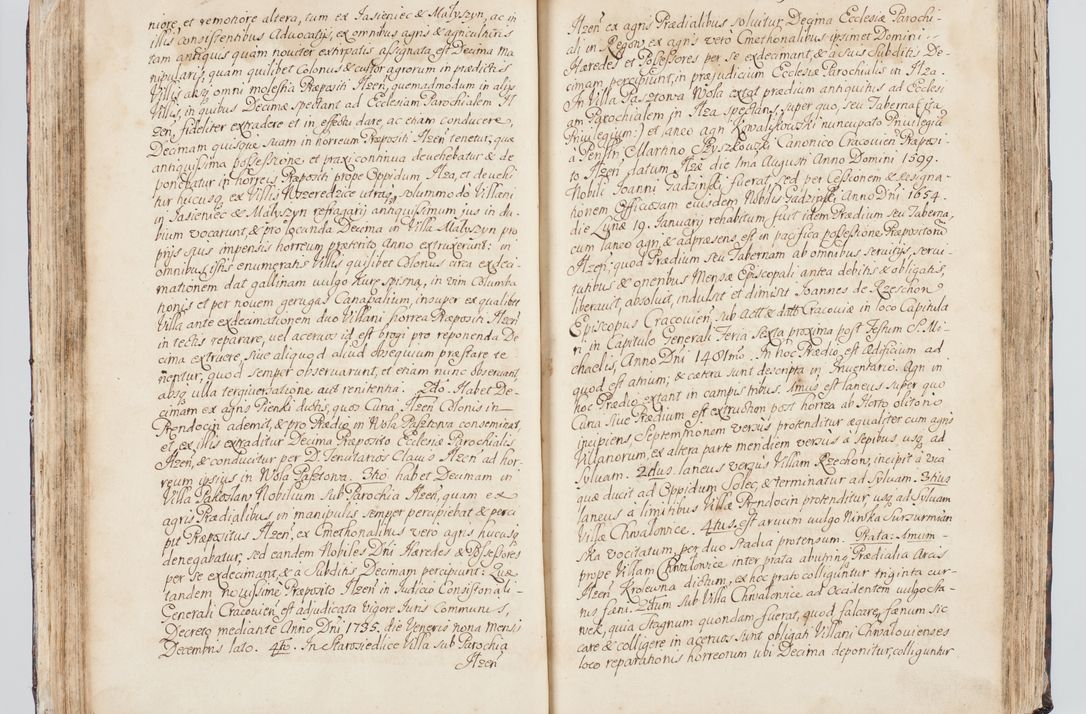 niore, et remotiore altera, tum ex Jasieniec & Małyszyn, ac in
illis consistentibus Advocatijs, ex omnibus agris & agriculturis
tam antiquis quam noviter extirpatis assignata est Decima Ma
nipularis, quam quilibet Colonus & cultor agrorum in prædictis
Villis absq omni molestia Præposito Ilzen, quemadmodum in alijs
Villis, in quibus Decimæ spectant ad Ecclesiam Parochialem Il
zen, fideliter extradere et in effectu dare, ac etiam conducere
Decimam quisque suam in horreum Præpositi Ilzen tenetur, quæ
antiquissima possessione et praxi continua devehebatur & de
ponebatur in horreis Præpositi prope Oppidum Ilza, et devehi
tur hucusq ex Villis Wszeredzice utrasq, solummodo Villani
in Jasieniec & Małyszyn refragarij antiquissimum jus in du
bium vocarunt, & pro locanda Decima in Villa Małyszyn pro
prijs suis impensis horreum præterito Anno extruxerunt: in
omnibus istis enumeratis Villis quilibet Colonus circa exdeci
mationem dat gallinam vulgo Kur spisną, in vim Columba
tionis et per novem gerugas Canapalium, insuper ex qualibet
Villa ante exdecimationem duo Villani horrea Præpositi Ilzen
in tectis reparare, vel acervos id est brogi pro reponenda De
cima extruere, sive aliquod aliud obsequium præstare te
nentur, quod semper observarunt, et etiam nunc observant,
absq ulla tergiversatione aut renitentia. 2do Habet De
cimam ex agris Pienki dictis, quos Curia Ilzen Colonis in
Prendocin ademit, & pro Prædio in Wola Pasztova conseminat,
et ex illis extraditur Decima Præposito Ecclesiæ Parochialis
Ilzen, & conducitur per D. Tenutarios Clavis Ilzen ad hor
reum ipsius in Wola Pasztova. 3tio habet Decimam in
Villa Pakosław Nobilium sub Parochia Ilzen, quam ex
agris Prædialibus in manipulis semper percipiebat & perci
pit Præpositus Ilzen, ex Cmethonalibus vero agris hucusq
denegabatur, sed eandem Nobiles Dni Hæredes & Possessores
per se exdecimant, & à Subditis Decimam percipiunt: Quæ
tandem novissime Præposito Ilzen in Judicio Consistoriali
Generali Cracovien est adjudicata vigore Juris Communis,
Decreto mediante Anno Dni 1735. die Veneris nona Mensis
Decembris lato. 4to. In Starosiedlice Villa sub Parochia
Ilzen
Ilzen ex agris Prædialibus solvitur Decima Ecclesiæ Parochi
ali in Regow, ex agris vero Cmethonalibus ipsimet Domini
Hæredes et Possessores per se exdecimant, & à suis Subditis De
cimam percipiunt, in præjudicium Ecclesiæ Parochialis in Ilza.
In Villa Pasztowa Wola extat prædium antiquitus ad Ecclesi
am Parochialem in Ilza spectans, super quo, seu Taberna (ita
Privilegium:) et laneo agri Kowalikowski nuncupato Privilegiū
à Perill. Martino Szyszkowski Canonico Cracovien Præposi
to Ilzen datum Ilzæ die Ima Augusti Anno Domini 1599.
Nobili Joanni Gadzinski fuerat, sed per Cessionem & Resigna
tionem Officiosam eiusdem Nobilis Gadzinski Anno Dni 1654.
die Lunæ 19. Januarij rehabitum, fuit idem Prædium seu Taberna,
cum laneo agri, & adpræsens est in pacifica possessione Præpositorū
Ilzen, quod Prædium seu Tabernam ab omnibus servitijs, servi-
tutibus & oneribus Mensæ Episcopali antea debitis & obligatis,
liberavit, absolvit, indulsit et dimisit Joannes de Rzeschow
Episcopus Cracovien, sub act & datt Cracoviæ in loco Capitula
ri, in Capitulo Generali Feria Sexta proxima post Festum S. Mi
chaelis, Anno Dni 1481mo. In hoc Prædio est Ædificium ad
quod est atrium, & cætera sunt descripta in Inventario. Agri in
hoc Prædio extant in campis tribus. 1mus est laneus super quo
Curia sive Prædium est extructum post horrea ab Horto olitorio
incipiens, Septemtrionem versus protenditur æqualiter cum agris
Villanorum, ex altera parte meridiem versus à sepibus, usq ad
Sylvam. 2dus. laneus versus Villam Rzechow, incipit à via
quæ ducit ad Oppidum Solec, & terminatur ad Sylvam. 3tius
laneus a limitibus Villæ Prendocin protenditur usq ad Sylvam
Villæ Chwalowice. 4tus. est arvum vulgo Ninska Surzurmiań
ska vocitatum, per duo Stadia protensum. Prata: 1mum-
prope Villam Chwalowice inter prata abunins Prædialia Arcis
Ilzen Krolewna dictum, ex hoc prato colliguntur triginta cur-
rus fæni. 2dum Sub Villa Chwalowice ad Occidentem vulgo Sta-
wek, quia Stagnum quondam fuerat, quod falcare, fænum sic
care & colligere in acervos sunt obligati Villani Chwalovienses
loco reparationis horreorum ubi Decima deponitur, colliguntur